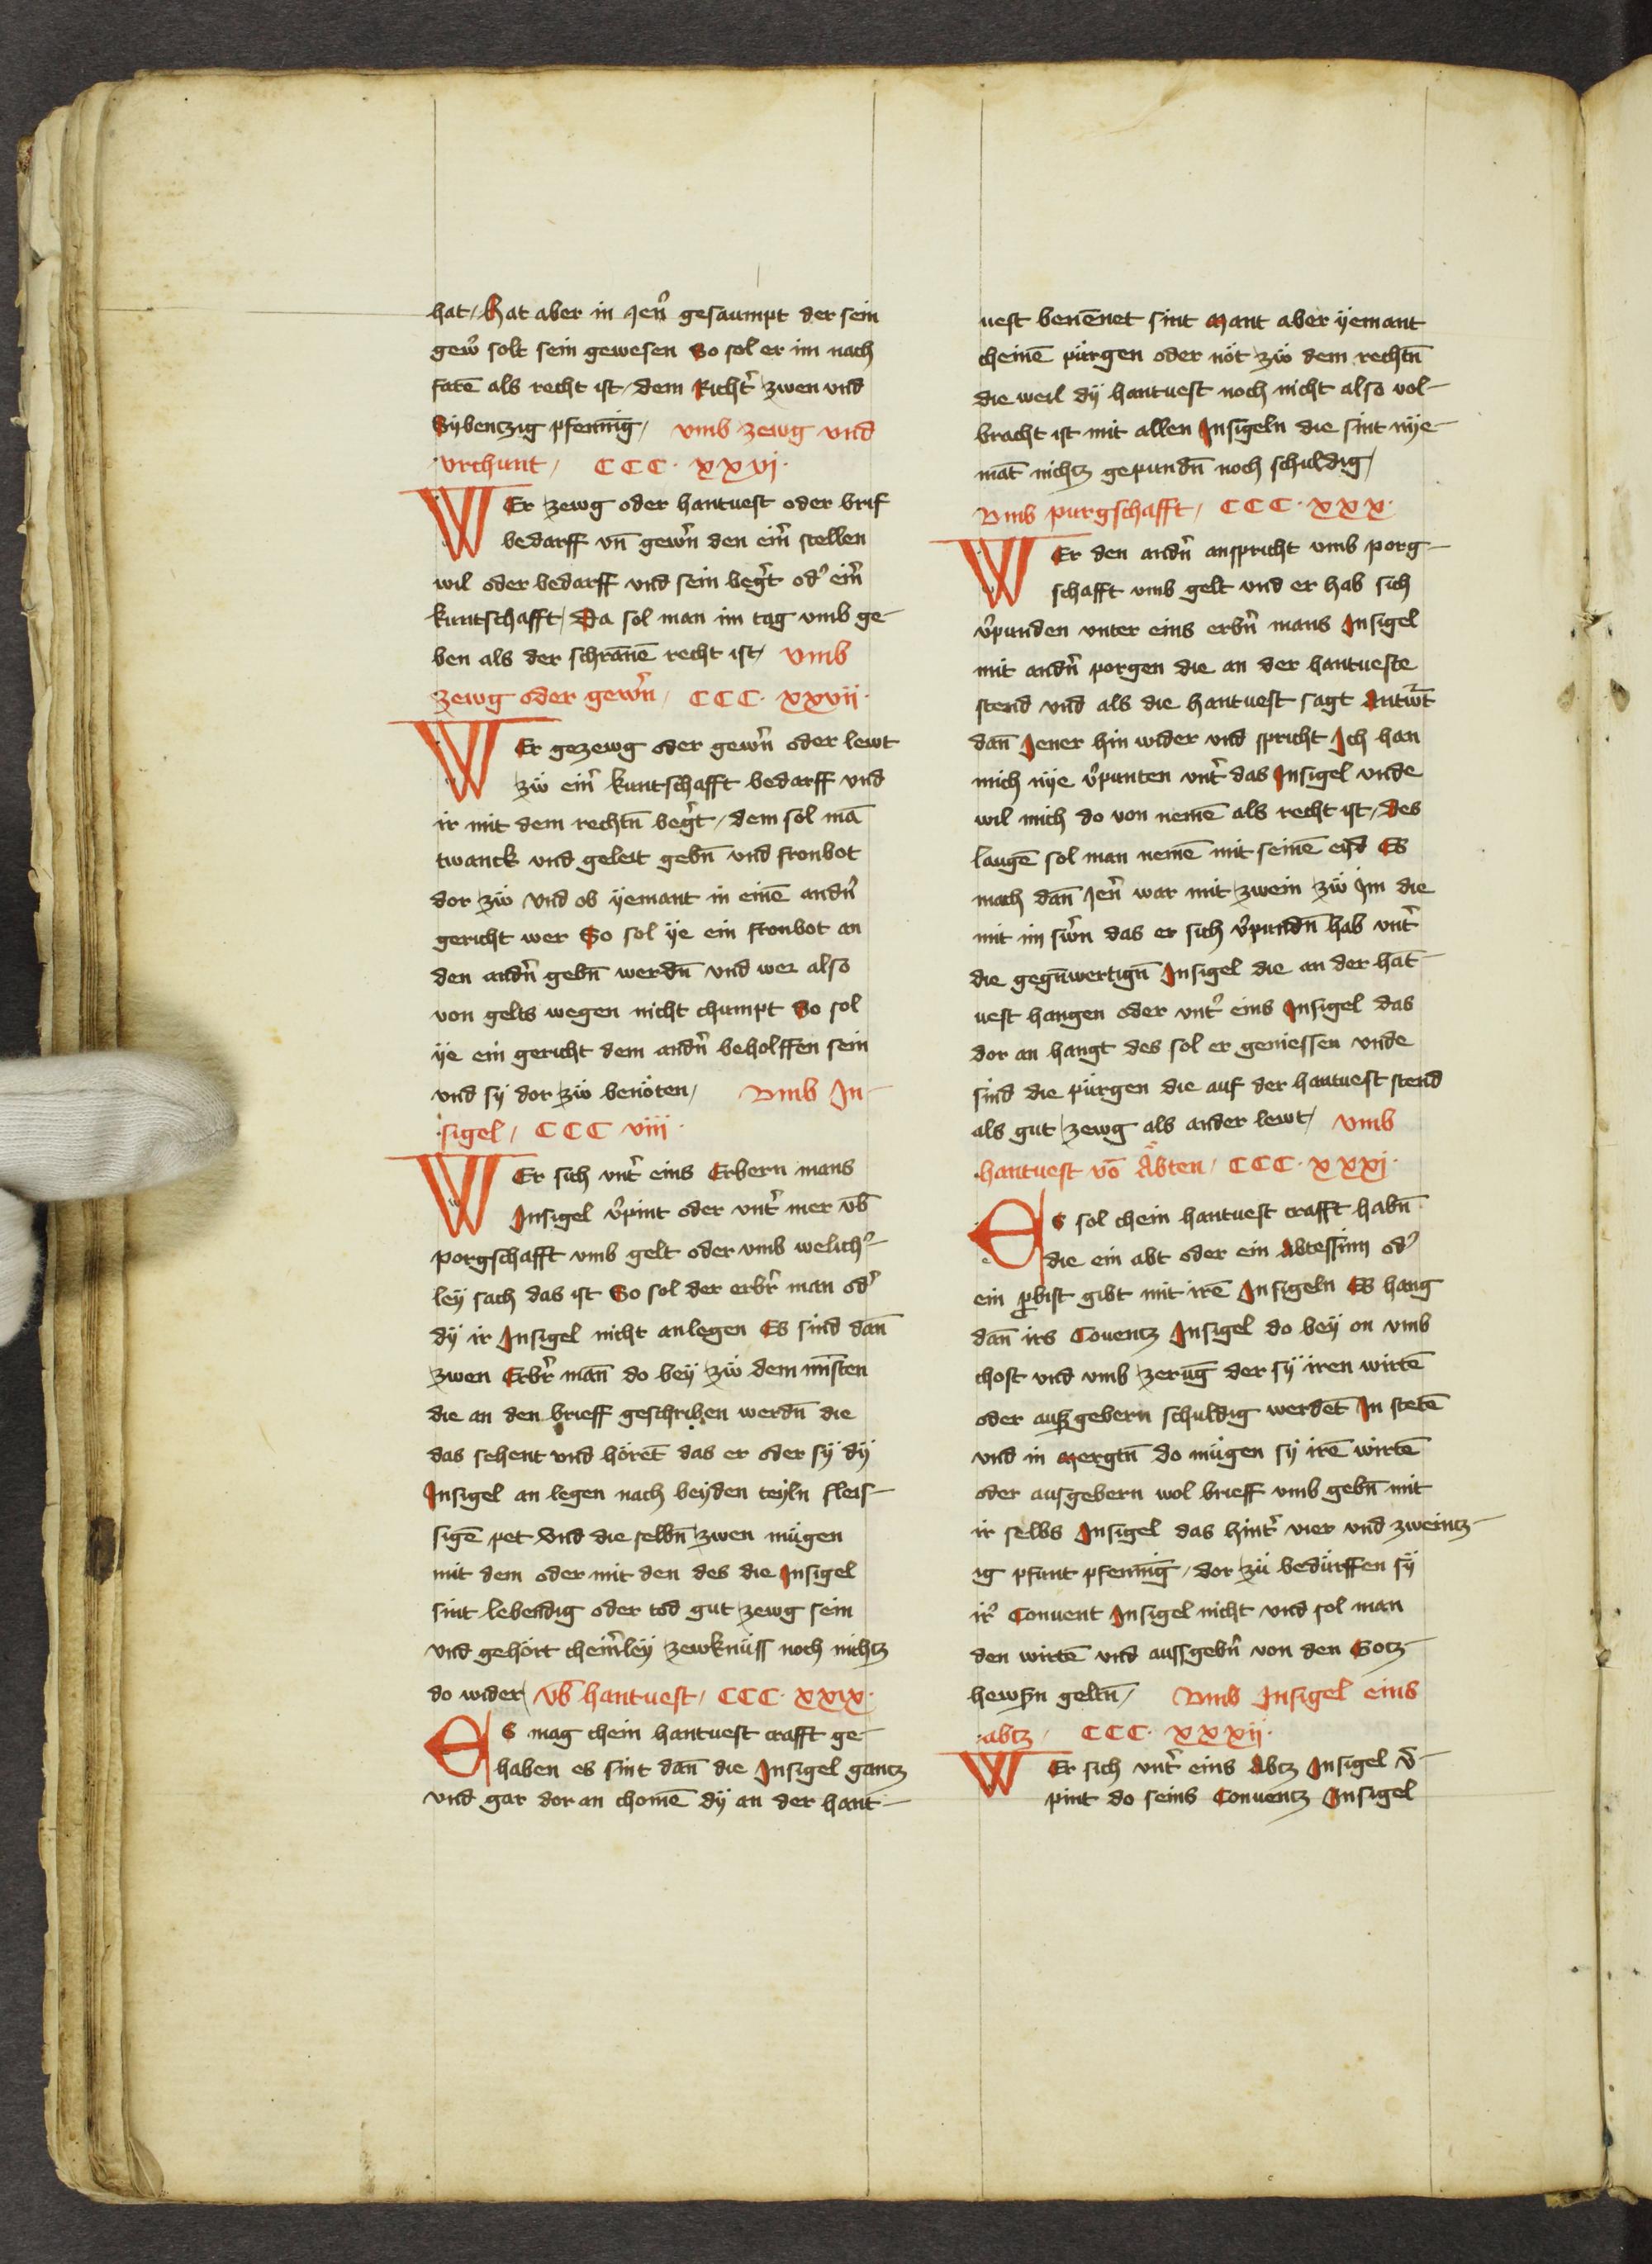 hat / hat aber in Jen̄ gesaumpt der sein
gew̄ solt sein gewesen So sol er im nach
farē als recht ist / dem Richt̄ zwen vnd
Sÿbenczig pfennīg / vmb zewg vnd
vrchunt / CCC · xxvj ·
WEr zewg oder hantuest oder brif
bedarff vn̄ gew̄n den ein̄ stellen
wil oder bedarff vnd sein beḡt od̄ ein̄
kuntschafft / Da sol man im tag vmb ge-
ben als der schrānē recht ist / vmb
zewg oder gew̄n / CCC · xxvij ·
WEr gezewg oder gew̄n oder lewt
zẅ ein̄ kuntschafft bedarff vnd
ir mit dem rechtn̄ beḡt / dem sol mā
twanck vnd geleit gebn̄ vnd fronbot
dor zẅ vnd ob ÿemant in einē andn̄
gericht wer So sol ÿe ein fronbot an
den andn̄ gebn̄ werdn̄ vnd wer also
von gelts wegen nicht chumpt So sol
ÿe ein gericht dem andn̄ beholffen sein
vnd sÿ dor zẅ benöten / Vmb In-
sigel / CCC viij ·
WEr sich vnt̄ eins Erbern mans
Insigel v̄pint oder vnt̄ mer vb̄
porgschafft vmb gelt oder vmb welich̄-
leÿ sach das ist So sol der erbr̄ man od̄
dÿ ir Insigel nicht anlegen Es sind dan̄
zwen Erbr̄ man̄ do beÿ zẅ dem mīsten
die an den brieff geschriben werdn̄ die
das sehent vnd hörēt das er oder sÿ dÿ
Insigel an legen nach beÿden teÿln fleis-
sigē pet Vnd die selbn̄ zwen mügen
mit dem oder mit den des die Insigel
sint lebendig oder tod gut zewg sein
vnd gehört chein̄leÿ zewknüss noch nichtz
do wider / vb̄ hantuest / CCC · xxix ·
ES mag chein hantuest crafft ge-
haben es sint dan̄ die Insigel gantz
vnd gar dor an chomē dÿ an der hant-
uest benēnet sint Mant aber ÿemant
cheinē pürgen oder nöt zẅ dem rechtn̄
die weil dÿ hantuest noch nicht also vol-
bracht ist mit allen Insigeln die sint nÿe-
māt nichtz gepundn̄ noch schuldig /
Vmb purgschafft / CCC · xxx ·
WEr den andn̄ anspricht vmb porg-
schafft vmb gelt vnd er hab sich
v̄punden vnter eins erbn̄ mans Insigel
mit andn̄ porgen die an der hantueste
stend vnd als die hantuest sagt Antw̄t
dan̄ Jener hin wider vnd spricht Ich han
mich nÿe v̄punten vnt̄ das Insigel vnde
wil mich do von nemē als recht ist / des
laugē sol man nemē mit seinē eÿd Es
mach dan̄ Jen̄ war mit zwein zẅ Im die
mit im sw̄n das er sich v̄pundn̄ hab vnt̄
die gegn̄wertign̄ Insigel die an der hāt-
uest hangen oder vnt̄ eins Insigel das
dor an hangt des sol er geniessen vnde
sind die pürgen die auf der hantuest stend
als gut zewg als ander lewt / vmb
hantuest vō Äbten / CCC · xxxj ·
ES sol chein hantuest crafft habn̄
die ein abt oder ein Abtessinn od̄
ein probist gibt mit irē Insigeln Es hang
dan̄ irs Couentz Insigel do beÿ on vmb
chost vnd vmb zerūg der sÿ iren wirtē
oder auszgebern schuldig werdēt In stetē
vnd in Mergtn̄ do mügen sÿ irē wirtē
oder ausgebern wol brieff vmb gebn̄ mit
ir selbs Insigel das hint̄ vier vnd zweintz-
ig pfunt pfennīg / dor zü bedürffen sÿ
ir̄ Conuent Insigel nicht vnd sol man
den wirtē vnd aussgebn̄ von den Gotz-
hewszn geltn̄ / Vmb Insigel eins
abtz / CCC · xxxij ·
WEr sich vnt̄ eins Abtz Insigel v̄-
pint do seins Conuentz Insigel